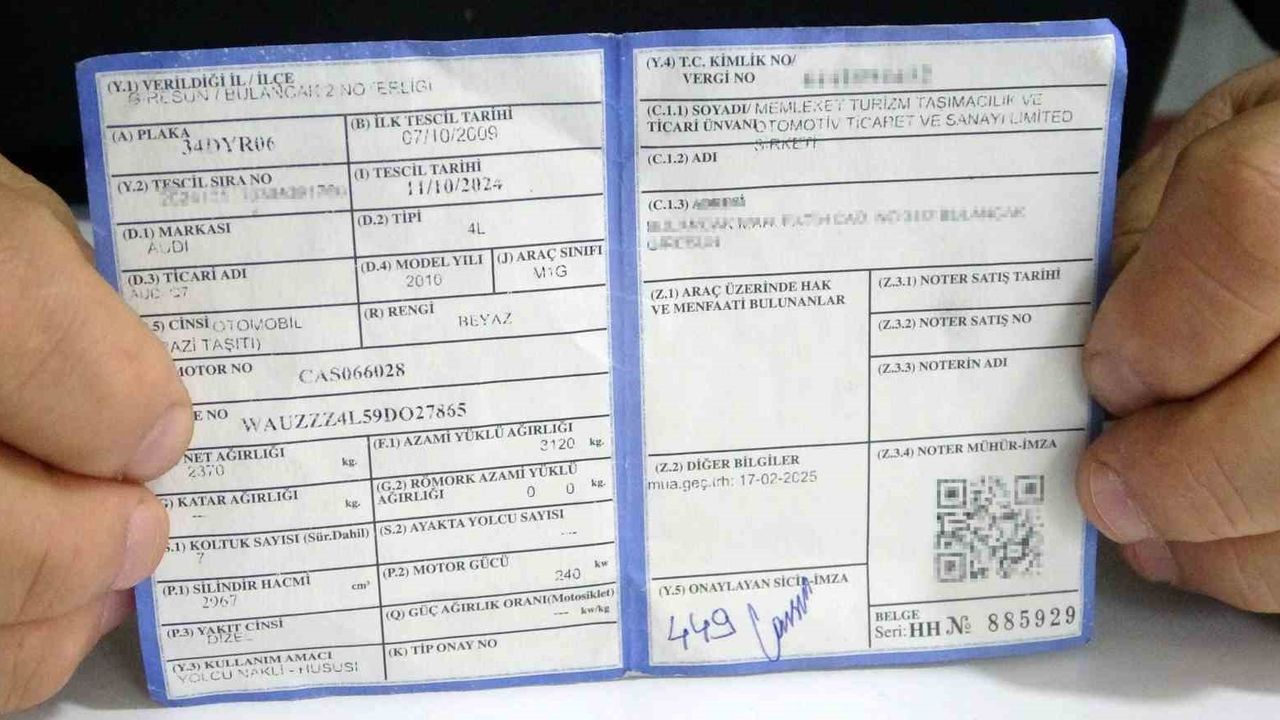 (Y.1) VERİLDİĞİ İL / İLÇE
GİRESUN / BULANCAK 2 NOTERLİĞİ
(A) PLAKA
34DYR06
(B) İLK TESCİL TARİHİ
07/10/2009
(Y.2) TESCİL SIRA NO
(I) TESCİL TARİHİ
11/10/2024
(D.1) MARKASI
AUDI
(D.2) TİPİ
4L
(D.3) TİCARİ ADI
(D.4) MODEL YILI
2010
(J) ARAÇ SINIFI
M1G
.5) CİNSİ OTOMOBİL
AZİ TAŞITI)
(R) RENGİ
BEYAZ
MOTOR NO
CAS066028
E NO
WAUZZZ4L59DO27865
NET AĞIRLIĞI
2370 kg.
(F.1) AZAMİ YÜKLÜ AĞIRLIĞI
3120 kg.
) KATAR AĞIRLIĞI
--- kg.
(G.2) RÖMORK AZAMİ YÜKLÜ
AĞIRLIĞI 0 0 kg.
.1) KOLTUK SAYISI (Sür.Dahil)
7
(S.2) AYAKTA YOLCU SAYISI
---
(P.1) SİLİNDİR HACMİ cm³
2967
(P.2) MOTOR GÜCÜ
240 kw
(P.3) YAKIT CİNSİ
DİZEL
(Q) GÜÇ AĞIRLIK ORANI(Motosiklet)
--- kw/kg
(Y.3) KULLANIM AMACI
YOLCU NAKLİ - HUSUSİ
(K) TİP ONAY NO
(Y.4) T.C. KİMLİK NO/
VERGİ NO
(C.1.1) SOYADI/ MEMLEKET TURİZM TAŞIMACILIK VE
TİCARİ ÜNVANI OTOMOTİV TİCARET VE SANAYİ LİMİTED
ŞİRKETİ
(C.1.2) ADI
(C.1.3) ADRESİ
(Z.1) ARAÇ ÜZERİNDE HAK
VE MENFAATİ BULUNANLAR
(Z.3.1) NOTER SATIŞ TARİHİ
(Z.3.2) NOTER SATIŞ NO
(Z.3.3) NOTERİN ADI
(Z.2) DİĞER BİLGİLER
mua.geç.trh: 17-02-2025
(Z.3.4) NOTER MÜHÜR-İMZA
(Y.5) ONAYLAYAN SİCİL-İMZA
449
BELGE
Seri: HH № 885929